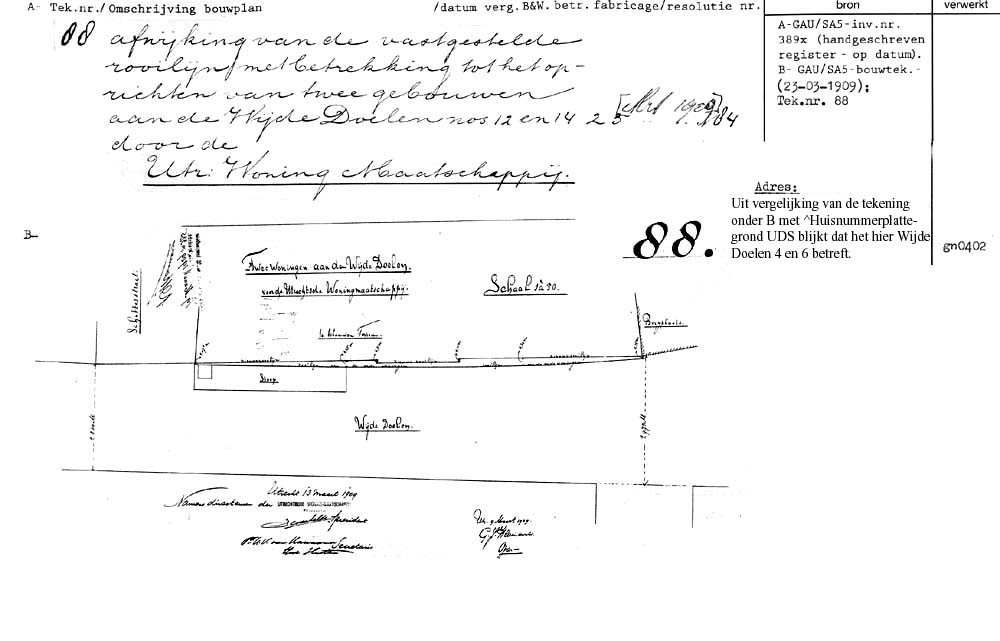 A- Tek.nr./Omschrijving bouwplan /datum verg.B&W. betr.fabricage/resolutie nr. bron verwerkt
88 afwijking van de vastgestelde
rooilijn, met betrekking tot het op-
richten van twee gebouwen
aan de Wijde Doelen nos 12 en 14 23 [Mrt 1909] 184
door de
Utr: Woning Maatschappij.
A-GAU/SA5-inv.nr.
389x (handgeschreven
register - op datum).
B- GAU/SA5-bouwtek.-
(23-03-1909);
Tek.nr. 88
Adres:
Uit vergelijking van de tekening
onder B met ^Huisnummerplatte-
grond UDS blijkt dat het hier Wijde
Doelen 4 en 6 betreft.
gn0402
B-
88.
Twee Woningen aan de Wijde Doelen.
van de Utrechtsche Woningmaatschappij.
Schaal 1 à 50.
te bebouwen Terrein
Stoep
Wijde Doelen.
Utrecht 13 maart 1909
Namens directeuren der UTRECHTSCHE
Secretaris
Utr. 9 Maart 1909.